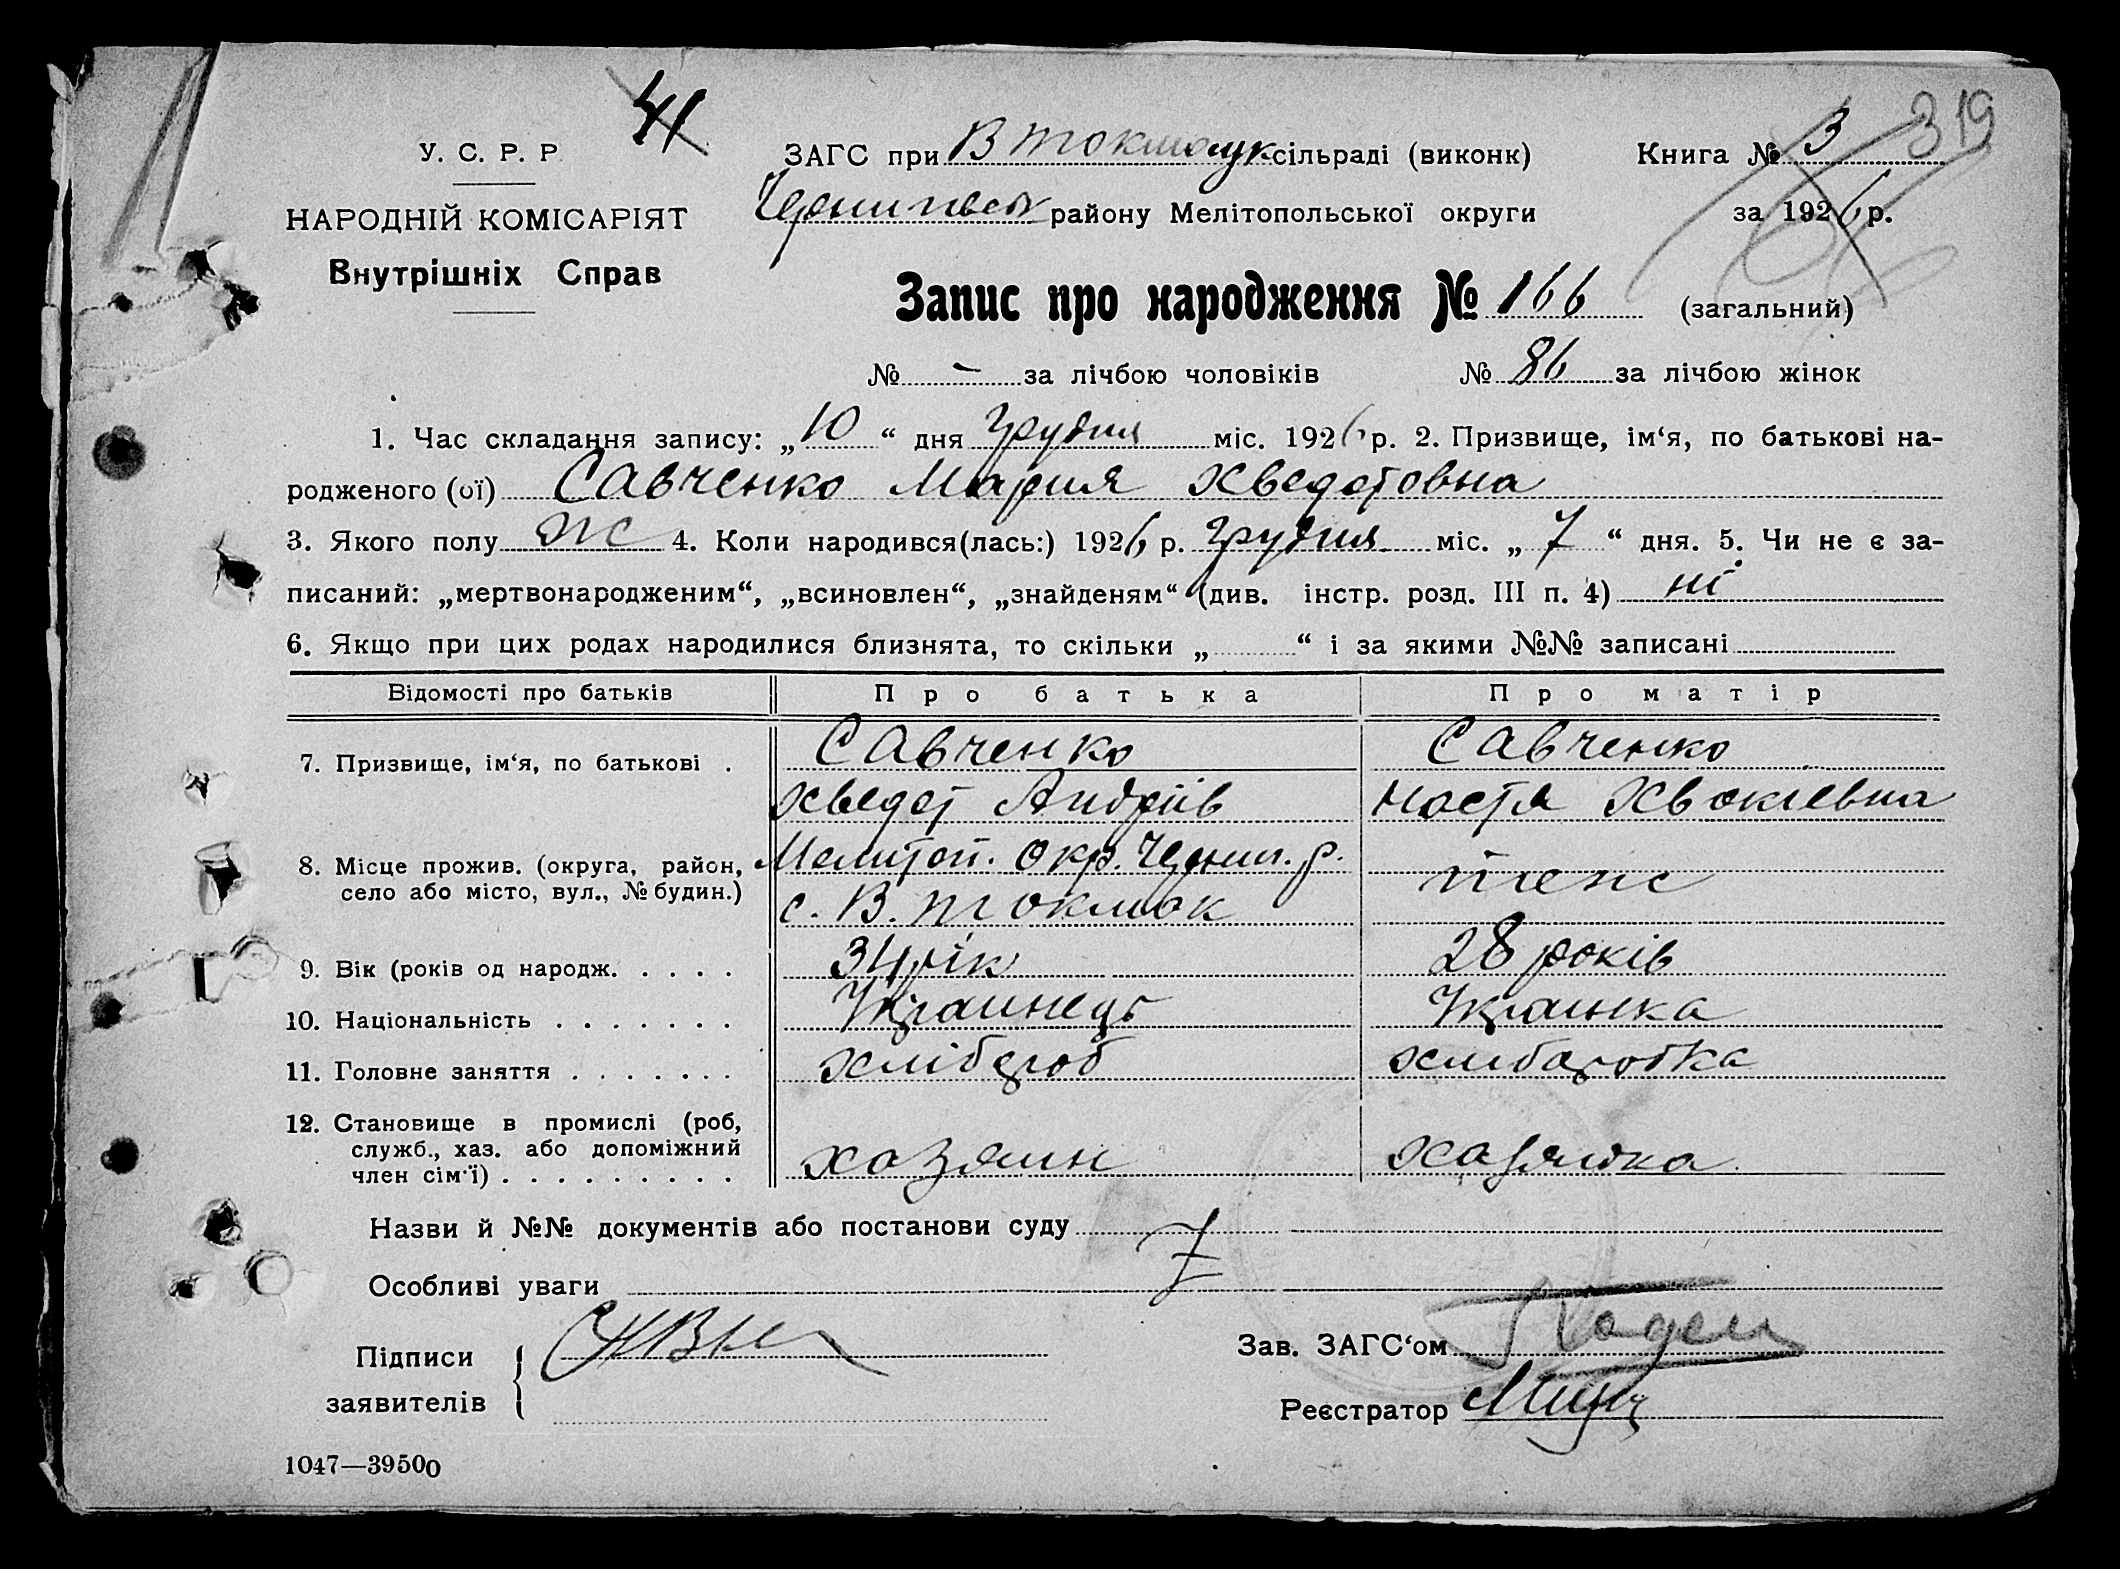 41
319
У. С. Р. Р
НАРОДНІЙ КОМІСАРІЯТ
Внутрішніх Справ
ЗАГС при В Токмацук сільраді (виконк) Книга № 3
Чернигівськ району Мелітопольської округи за 1926 р.
Запис про народження № 166 (загальний)
№ - за лічбою чоловіків № 86 за лічбою жінок
1. Час складання запису: „10“ дня Грудня міс. 1926 р. 2. Призвище, ім‘я, по батькові на-
родженого (ої) Савченко Мария Хведотовна
3. Якого полу Ж 4. Коли народився(лась:) 1926 р. Грудня міс. „7“ дня. 5. Чи не є за-
писаний: „мертвонародженим“, „всиновлен“, „знайденям“ (див. інстр. розд. III п. 4) ні
6. Якщо при цих родах народилися близнята, то скільки „ “ і за якими №№ записані
Відомості про батьків Про батька Про матір
7. Призвище, ім‘я, по батькові . Савченко Савченко
Хведот Андріїв Настя
8. Місце прожив. (округа, район, Мелитоп. Окр. Черниг. р.
село або місто, вул., № будин.) с. В. Токмак теж
9. Вік (років од народж. . . . . 34 рік 28 років
10. Національність . . . . . . . Украинець Украинка
11. Головне заняття . . . . . . . хлібороб хлиборобка
12. Становище в промислі (роб,
служб., хаз. або допоміжний
член сім‘ї) . . . . . . . . . хазяин хазяйка
Назви й №№ документів або постанови суду
Особливі уваги
Підписи
заявителів
Зав. ЗАГС‘ом
Реєстратор
1047—39500